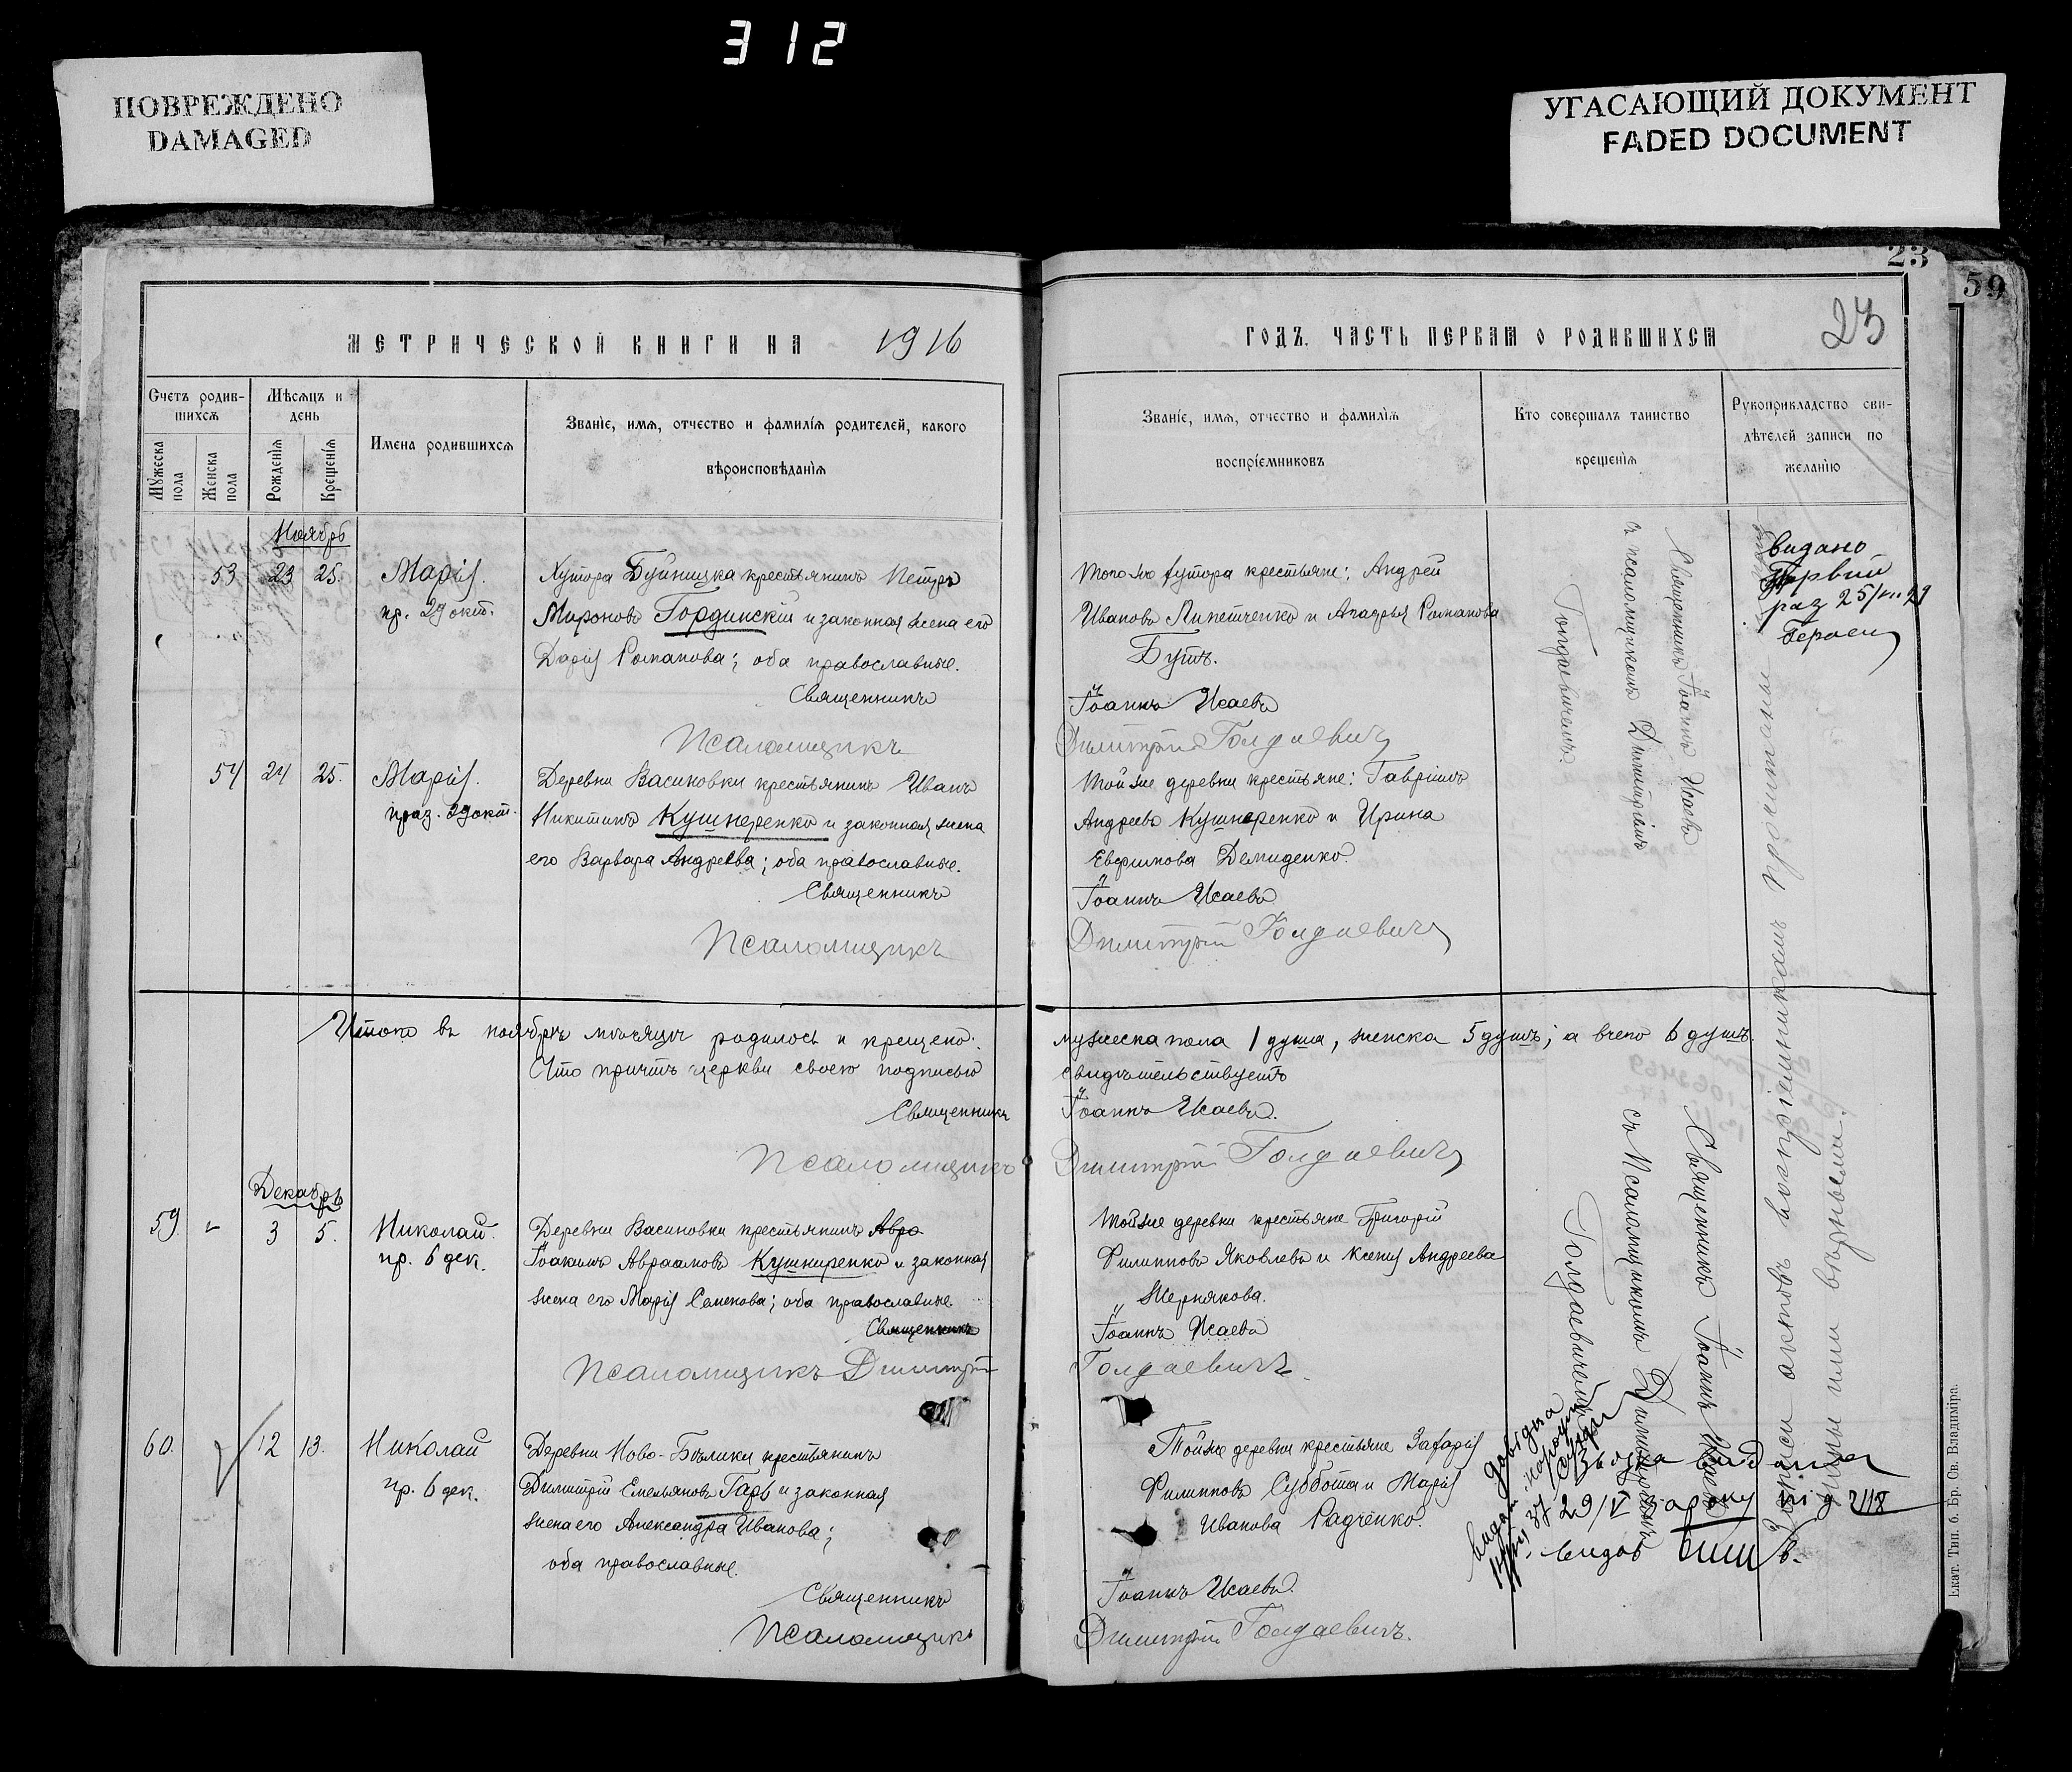 312
ПОВРЕЖДЕНО
DAMAGED
УГАСАЮЩИЙ ДОКУМЕНТ
FADED DOCUMENT
23
59
МЕТРИЧЕСКОЙ КНИГИ НА 1916
Счетъ родив-
шихсѧ
Мѣсѧцъ и
день
Мужеска
пола
Женска
пола
Рожденїѧ
Крещенїѧ
Имена родившихсѧ
Званїе, имѧ, отчество и фамилїѧ родителей, какого
вѣроисповѣданїѧ
Ноябрь
53 23 25. Марія.
пр. 29 окт.
Хутора Буйницка крестьянинъ Петръ
Мироновъ Гординскій и законная жена его
Дарія Романова; оба православные.
Священникъ
Псаломщикъ
54 24 25. Марія.
праз. 29 окт.
Деревни Васиновки крестьянинъ Иванъ
Никитинъ Кушнеренко и законная жена
его Варвара Андреева; оба православные.
Священникъ
Псаломщикъ
Итого въ ноябрѣ мѣсяцѣ родилось и крещено:
Что причтъ церкви своею подписью
Священникъ
Псаломщикъ
Декабрь
59. 3 5. Николай.
пр. 6 дек.
Деревни Васиновки крестьянинъ Авра
Іоакимъ Авраамовъ Кушниренко и законная
жена его Марія Семенова; оба православные.
Священникъ
Псаломщикъ Димитрій
60. 12 13. Николай
пр. 6 дек.
Деревни Ново-Бѣлики крестьянинъ
Димитрій Емельяновъ Гарь и законная
жена его Александра Иванова;
оба православные.
Священникъ
Псаломщикъ
ГОДЪ. ЧАСТЬ ПЕРВАѦ О РОДИВШИХСѦ
23
Званїе, имѧ, отчество и фамилїѧ
воспрїемниковъ
Кто совершалъ таинство
крещенїѧ
Рукоприкладство сви-
дѣтелей записи по
желанїю
Того же хутора крестьяне: Андрей
Ивановъ и Романова
Бутъ.
Іоаннъ Исаевъ
Димитрій Голдаевичъ
Той же деревни крестьяне: Гавріилъ
Андреевъ Кушнеренко и Ирина
Евфимова Демиденко.
Іоаннъ Исаевъ
Димитрій Голдаевичъ
мужеска пола 1 душа, женска 5 душъ; а всего 6 душъ.
свидѣтельствуетъ
Іоаннъ Исаевъ.
Димитрій Голдаевичъ
Той же деревни крестьяне Григорій
Филипповъ Яковлевъ и Ксенія Андреева
Жернякова.
Іоаннъ Исаевъ
Голдаевичъ.
Той же деревни крестьяне Захарія
Филипповъ Суббота и Марія
Иванова Радченко.
Іоаннъ Исаевъ.
Димитрій Голдаевичъ.
Священникъ Іоаннъ Исаевъ
съ псаломщикомъ Димитріемъ
Голдаевичемъ.
Священникъ Іоаннъ Исаевъ
съ Псаломщикомъ Димитріемъ
Голдаевичемъ
Записи актовъ воспріемникамъ прочитаны
ими вѣрными.
Видано
Первий
раз 25/
довідка
видана
29/V
року
видав
Екат. Тип. б. Бр. Св. Владиміра.